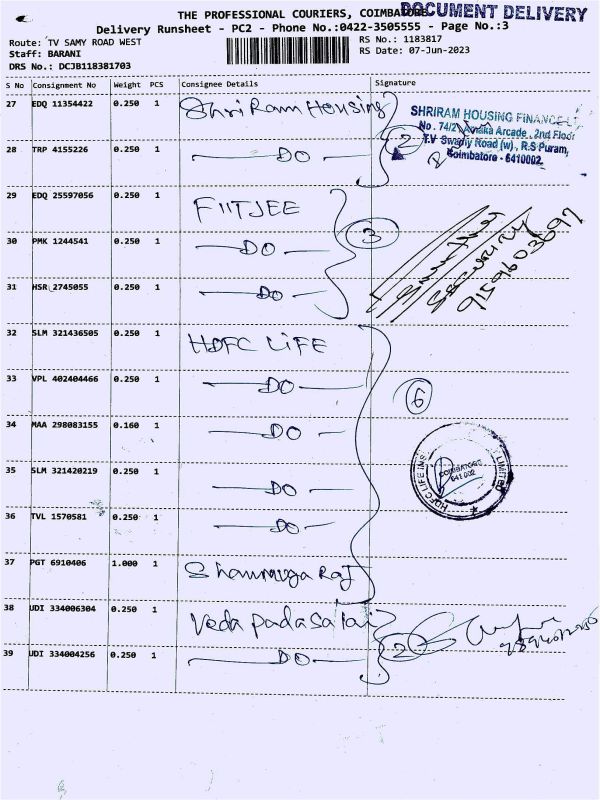 THE PROFESSIONAL COURIERS, COIMBATORE
DOCUMENT DELIVERY
Delivery Runsheet - PC2 - Phone No.:0422-3505555 - Page No.:3
Route: TV SAMY ROAD WEST
RS No.: 1183817
Staff: BARANI
RS Date: 07-Jun-2023
DRS No.: DCJB118381703
S No Consignment No Weight PCS Consignee Details Signature
27 EDQ 11354422 0.250 1 Shri Ram Housing
SHRIRAM HOUSING FINANCE
No. 74/2, Arcade, 2nd Floor
T.V Swamy Road (w), R.S Puram,
Coimbatore - 641002
28 TRP 4155226 0.250 1 DO
2
29 EDQ 25597056 0.250 1 FIITJEE
30 PMK 1244541 0.250 1 DO
3
31 HSR 2745055 0.250 1 DO
32 SLM 321436505 0.250 1 HDFC LIFE
33 VPL 402404466 0.250 1 DO
6
34 MAA 298083155 0.160 1 DO
35 SLM 321420219 0.250 1 DO
HDFC LIFE INS LIMITED
COIMBATORE
641 002
36 TVL 1570581 0.250 1 DO
37 PGT 6910406 1.000 1 Shanmuga Raj
38 UDI 334006304 0.250 1 Veda Padasalai
39 UDI 334004256 0.250 1 DO
2